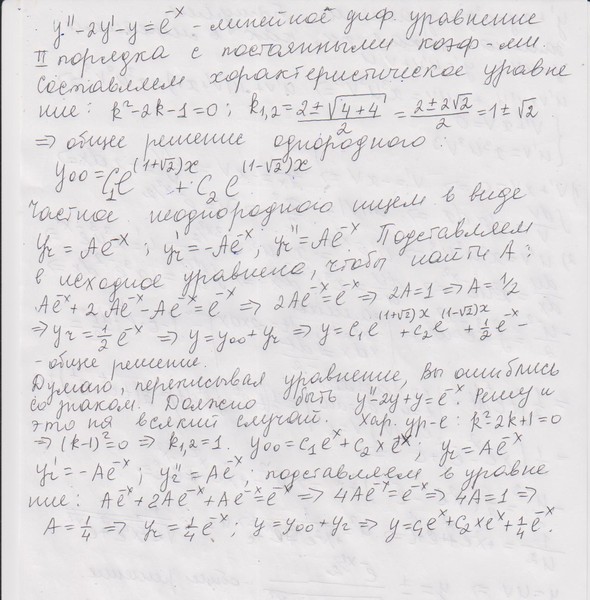 y''-2y'-y=e^-x - линейное диф. уравнение
II порядка с постоянными коэф-ми.
Составляем характеристическое уравне
ние: k²-2k-1=0; k₁,₂=(2±√(4+4))/2=(2±2√2)/2=1±√2
⇒ общее решение однородного:
y₀₀=C₁e^(1+√2)x+C₂e^(1-√2)x
Частное неоднородного ищем в виде
yг=Ae^-x; yг'=-Ae^-x, yг''=Ae^-x Подставляем
в исходное уравнение, чтобы найти A:
Ae^-x+2Ae^-x-Ae^-x=e^-x ⇒ 2Ae^-x=e^-x ⇒ 2A=1 ⇒ A=1/2
⇒ yг=1/2 e^-x ⇒ y=y₀₀+yг ⇒ y=C₁e^(1+√2)x+C₂e^(1-√2)x+1/2 e^-x -
- общее решение.
Думаю, переписывая уравнение, Вы ошиблись
со знаком. Должно быть y''-2y+y=e^-x. Решу и
это на всякий случай. Хар. ур-е: k²-2k+1=0
⇒ (k-1)²=0 ⇒ k₁,₂=1. y₀₀=C₁e^x+C₂xe^x; yг=Ae^-x
yг'=-Ae^-x; yг''=Ae^-x; подставляем в уравне
ние: Ae^-x+2Ae^-x+Ae^-x=e^-x ⇒ 4Ae^-x=e^-x ⇒ 4A=1 ⇒
A=1/4 ⇒ yг=1/4 e^-x; y=y₀₀+yг ⇒ y=C₁e^x+C₂xe^x+1/4 e^-x.